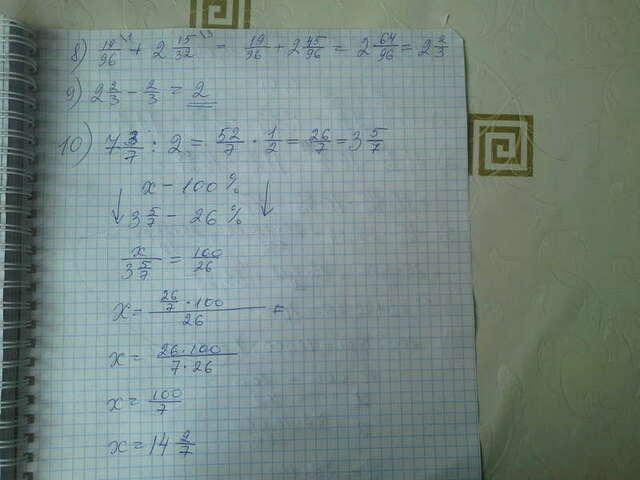 8) 19/96 \1 + 2 15/32 \3 = 19/96 + 2 45/96 = 2 64/96 = 2 2/3
9) 2 2/3 - 2/3 = 2
10) 7 3/7 : 2 = 52/7 · 1/2 = 26/7 = 3 5/7
↓ x - 100 % ↓
3 5/7 - 26 %
x / 3 5/7 = 100/26
x = 26/7 · 100 / 26 =
x = 26·100 / 7·26
x = 100/7
x = 14 2/7